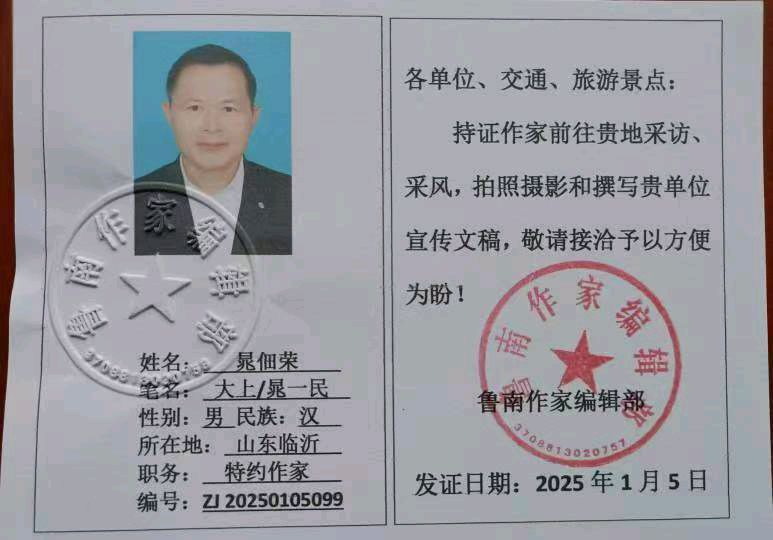 姓名：晁佃荣
笔名：大上/晁一民
性别：男 民族：汉
所在地：山东临沂
职务：特约作家
编号：ZJ 20250105099
鲁南作家编辑部
各单位、交通、旅游景点：
持证作家前往贵地采访、
采风，拍照摄影和撰写贵单位
宣传文稿，敬请接洽予以方便
为盼！
鲁南作家编辑部
发证日期：2025年1月5日
鲁南作家编辑部
3708813020757